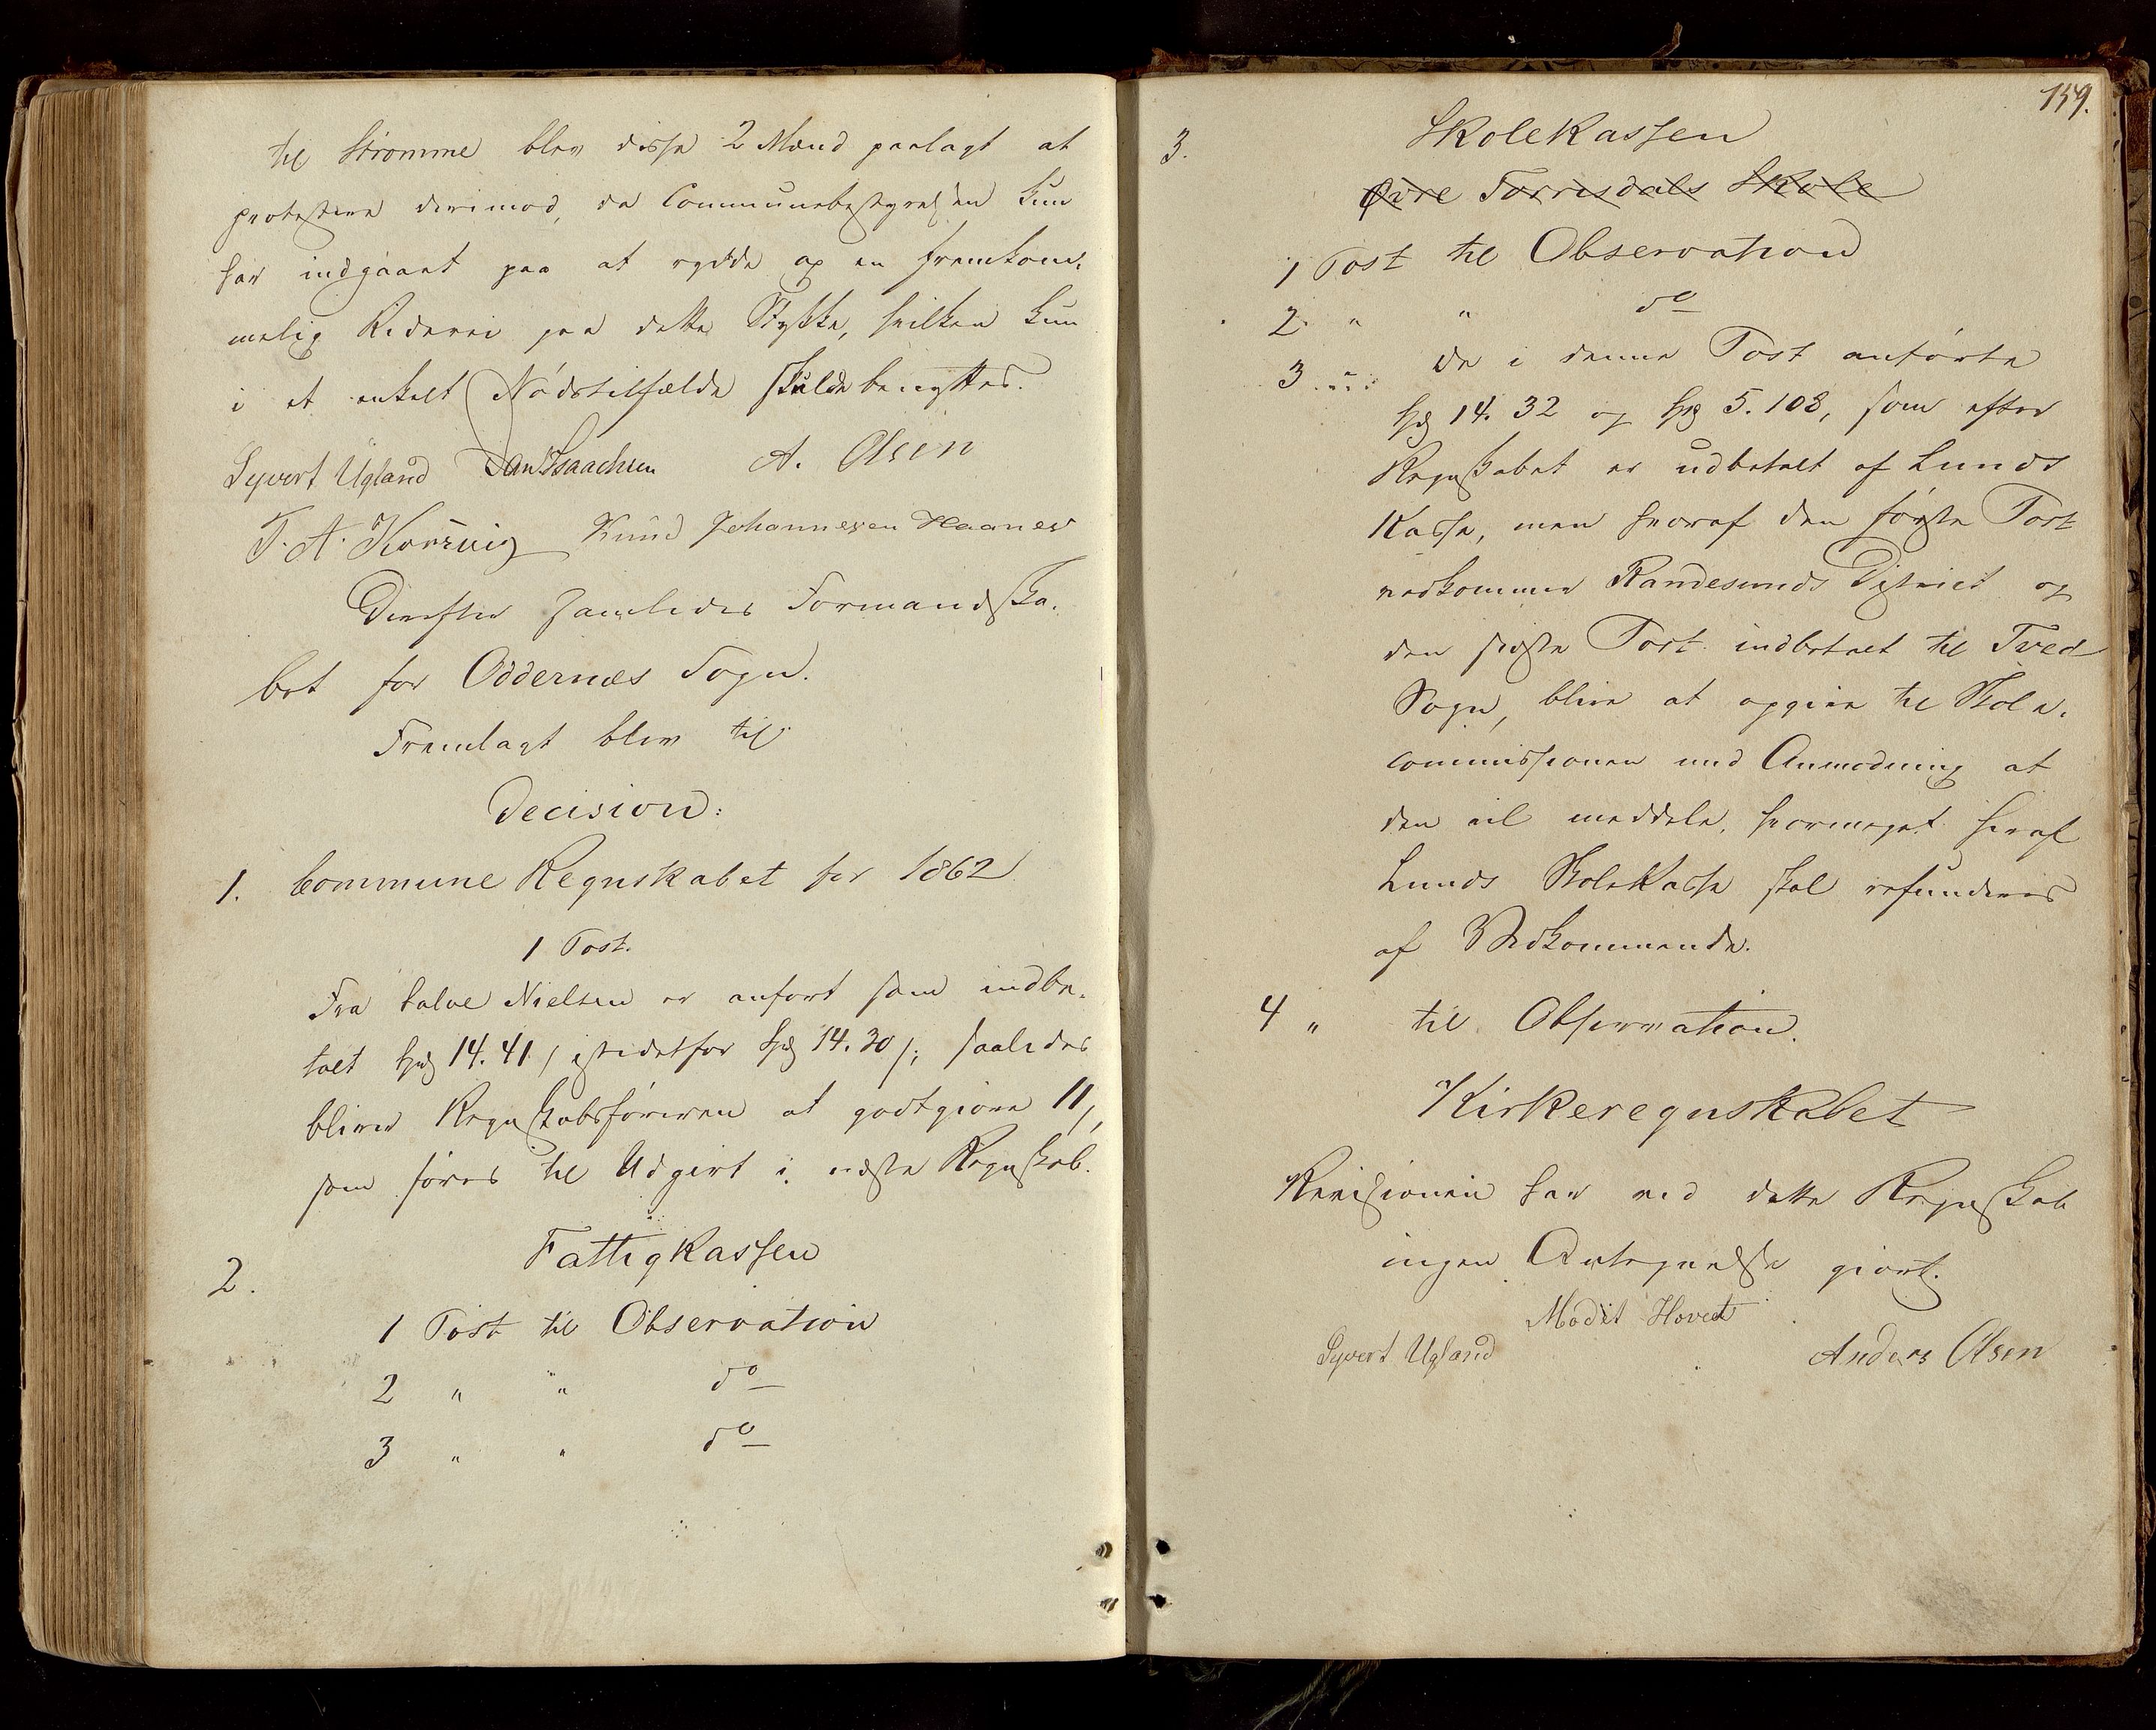 til Strømme blev disse 2 Mænd paalagt at
protestere derimod, da Communebestyrelsen kun
har indgaaet paa at rydde op en fremkom-
melig Ridevei paa dette Stykke, hvilken kun
i et enkelt Nødstilfælde skulde benyttes.
Syvert Ugland Dan Isaachsen A. Olsen
T. A. Korsvig Knud Johannesen Haanes
Derefter samledes Formandska-
bet for Oddernæs Sogn.
Fremlagt blev til
Decision:
1. Commune Regnskabet for 1862
1 Post.
Fra Salve Nielsen er anført som indbe-
talt Spd 14. 41 / istedetfor Spd 14. 30 /; saaledes
bliver Regnskabsføreren at godtgiøre 11 /,
som føres til Udgivt i næste Regnskab.
2. Fattigkassen
1 Post til Observation
2 " " do
3 " " do
159.
3. Skolekassen
Øvre Torrisdals Skole
1 Post til Observation
2 " " do
3 " " de i denne Post anførte
Spd 14. 32 og Spd 5. 108, som efter
Regnskabet er udbetalt af Lunds
Kasse, men hvoraf den første Post
vedkommer Randesunds District og
den sidste Post indbetalt til Tved
Sogn, blive at opgive til Skole-
commissionen med Anmodning at
den vil meddele, hvormeget heraf
Lunds Skolekasse skal refunderes
af Vedkommende.
4 " til Observation.
Kirkeregnskabet
Revisionen har ved dette Regnskab
ingen Antegnelse giort.
Hovet
Syvert Ugland Anders Olsen